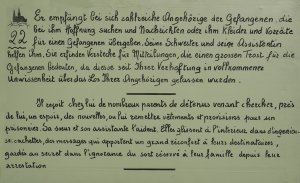 22
Er empfängt bei sich zahlreiche Angehörige der Gefangenen, die
bei ihm Hoffnung suchen und Nachrichten oder ihm Kleider und
für einen Gefangenen übergeben. Seine Schwester und seine Assistentin
helfen ihm. Sie erfinden Verstecke für Mitteilungen, die einen grossen Trost für die
Gefangenen bedeuten, da diese seit Ihrer Verhaftung in vollkommener
Unwissenheit über das Los Ihrer Angehörigen gelassen wurden.
Il reçoit chez lui de nombreux parents de détenus venant chercher, près
de lui, un espoir, des nouvelles, ou lui remettre vêtements et provisions pour un
prisonnier. Sa sœur et son assistante l'aident. Elles glissent à l'intérieur dans d'ingénieu-
ses cachettes, des messages qui apportent un grand réconfort à leurs destinataires,
gardés au secret dans l'ignorance du sort réservé à leur famille depuis leur
arrestation